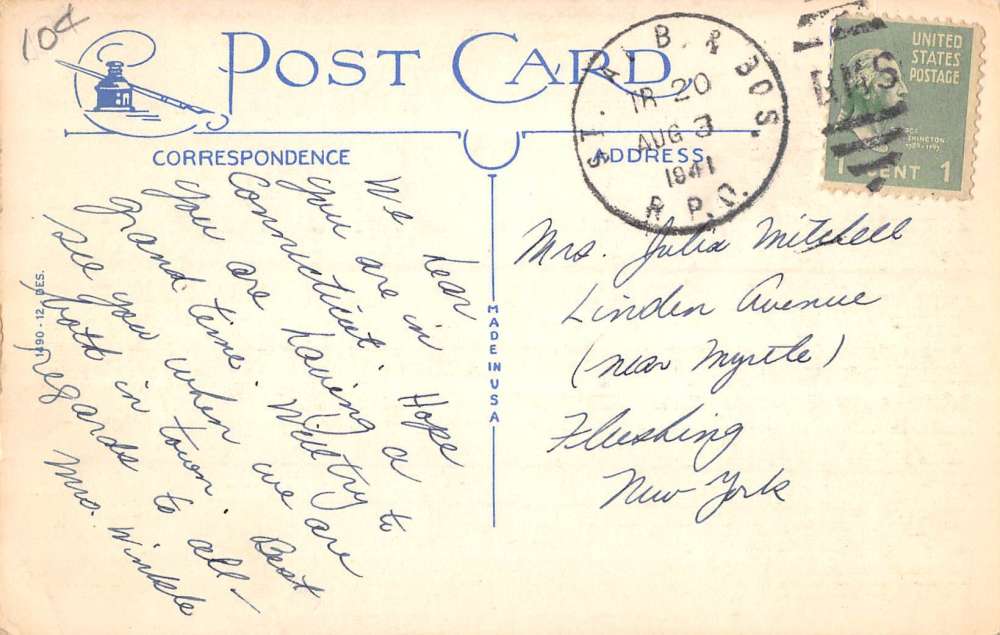 10¢
POST CARD
CORRESPONDENCE
ADDRESS
ST. ALB. & BOS.
TR 20
AUG 3
1941
R.P.O.
RMS
UNITED
STATES
POSTAGE
1 CENT 1
We hear
you are in
Connecticut. Hope
you are having a
grand time. Will try to
see you when we are
both in town. Best
regards to all –
Mrs. Winkle
1490-12, DES.
MADE IN USA
Mrs. Julia Mitchell
Linden Avenue
(near Myrtle)
Flushing
New York